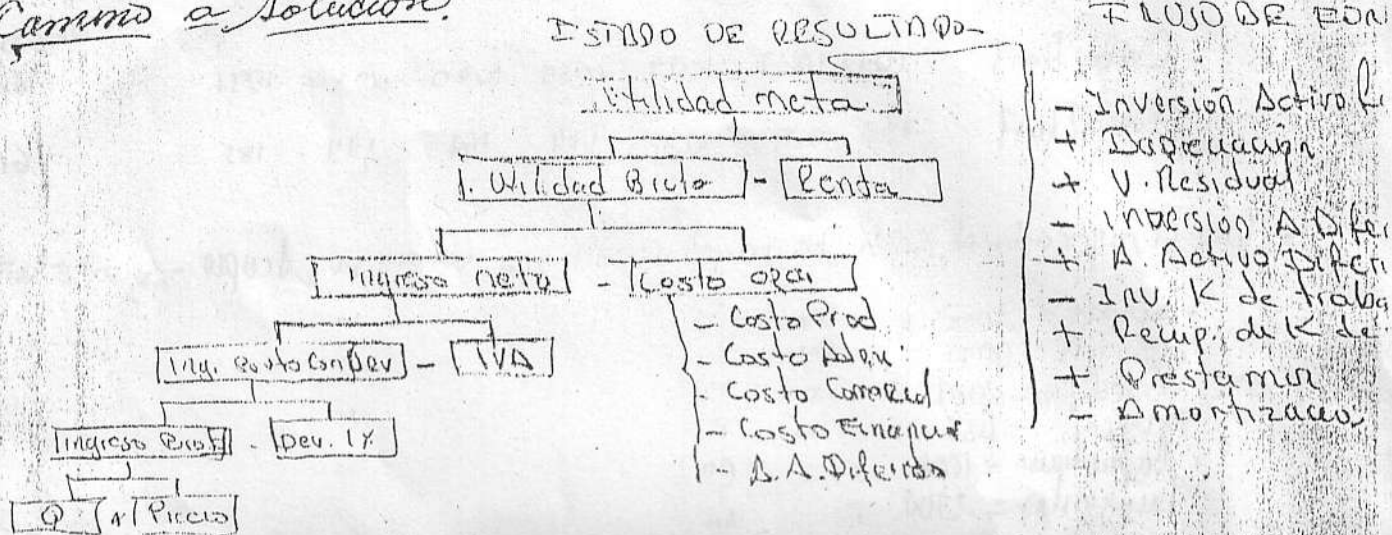 Camino a solución.
ESTADO DE RESULTADO
Utilidad neta
U. Utilidad Bruta - Renta
Ingreso neto - Costo oper
- Costo Prod
- Costo Adm.
- Costo Comercial
- Costo Financier
- A. A. Diferidos
Ing. Bruto Con Dev - IVA
Ingreso Bruto - Dev. 1%
Q x Precio
FLUJO DE FON
- Inversión Activo Fi
+ Depreciación
+ V. Residual
- Inversión A Difer
+ A. Activo Diferi
- Inv. K de traba
+ Recup. de K de
+ Prestamos
- Amortizacio